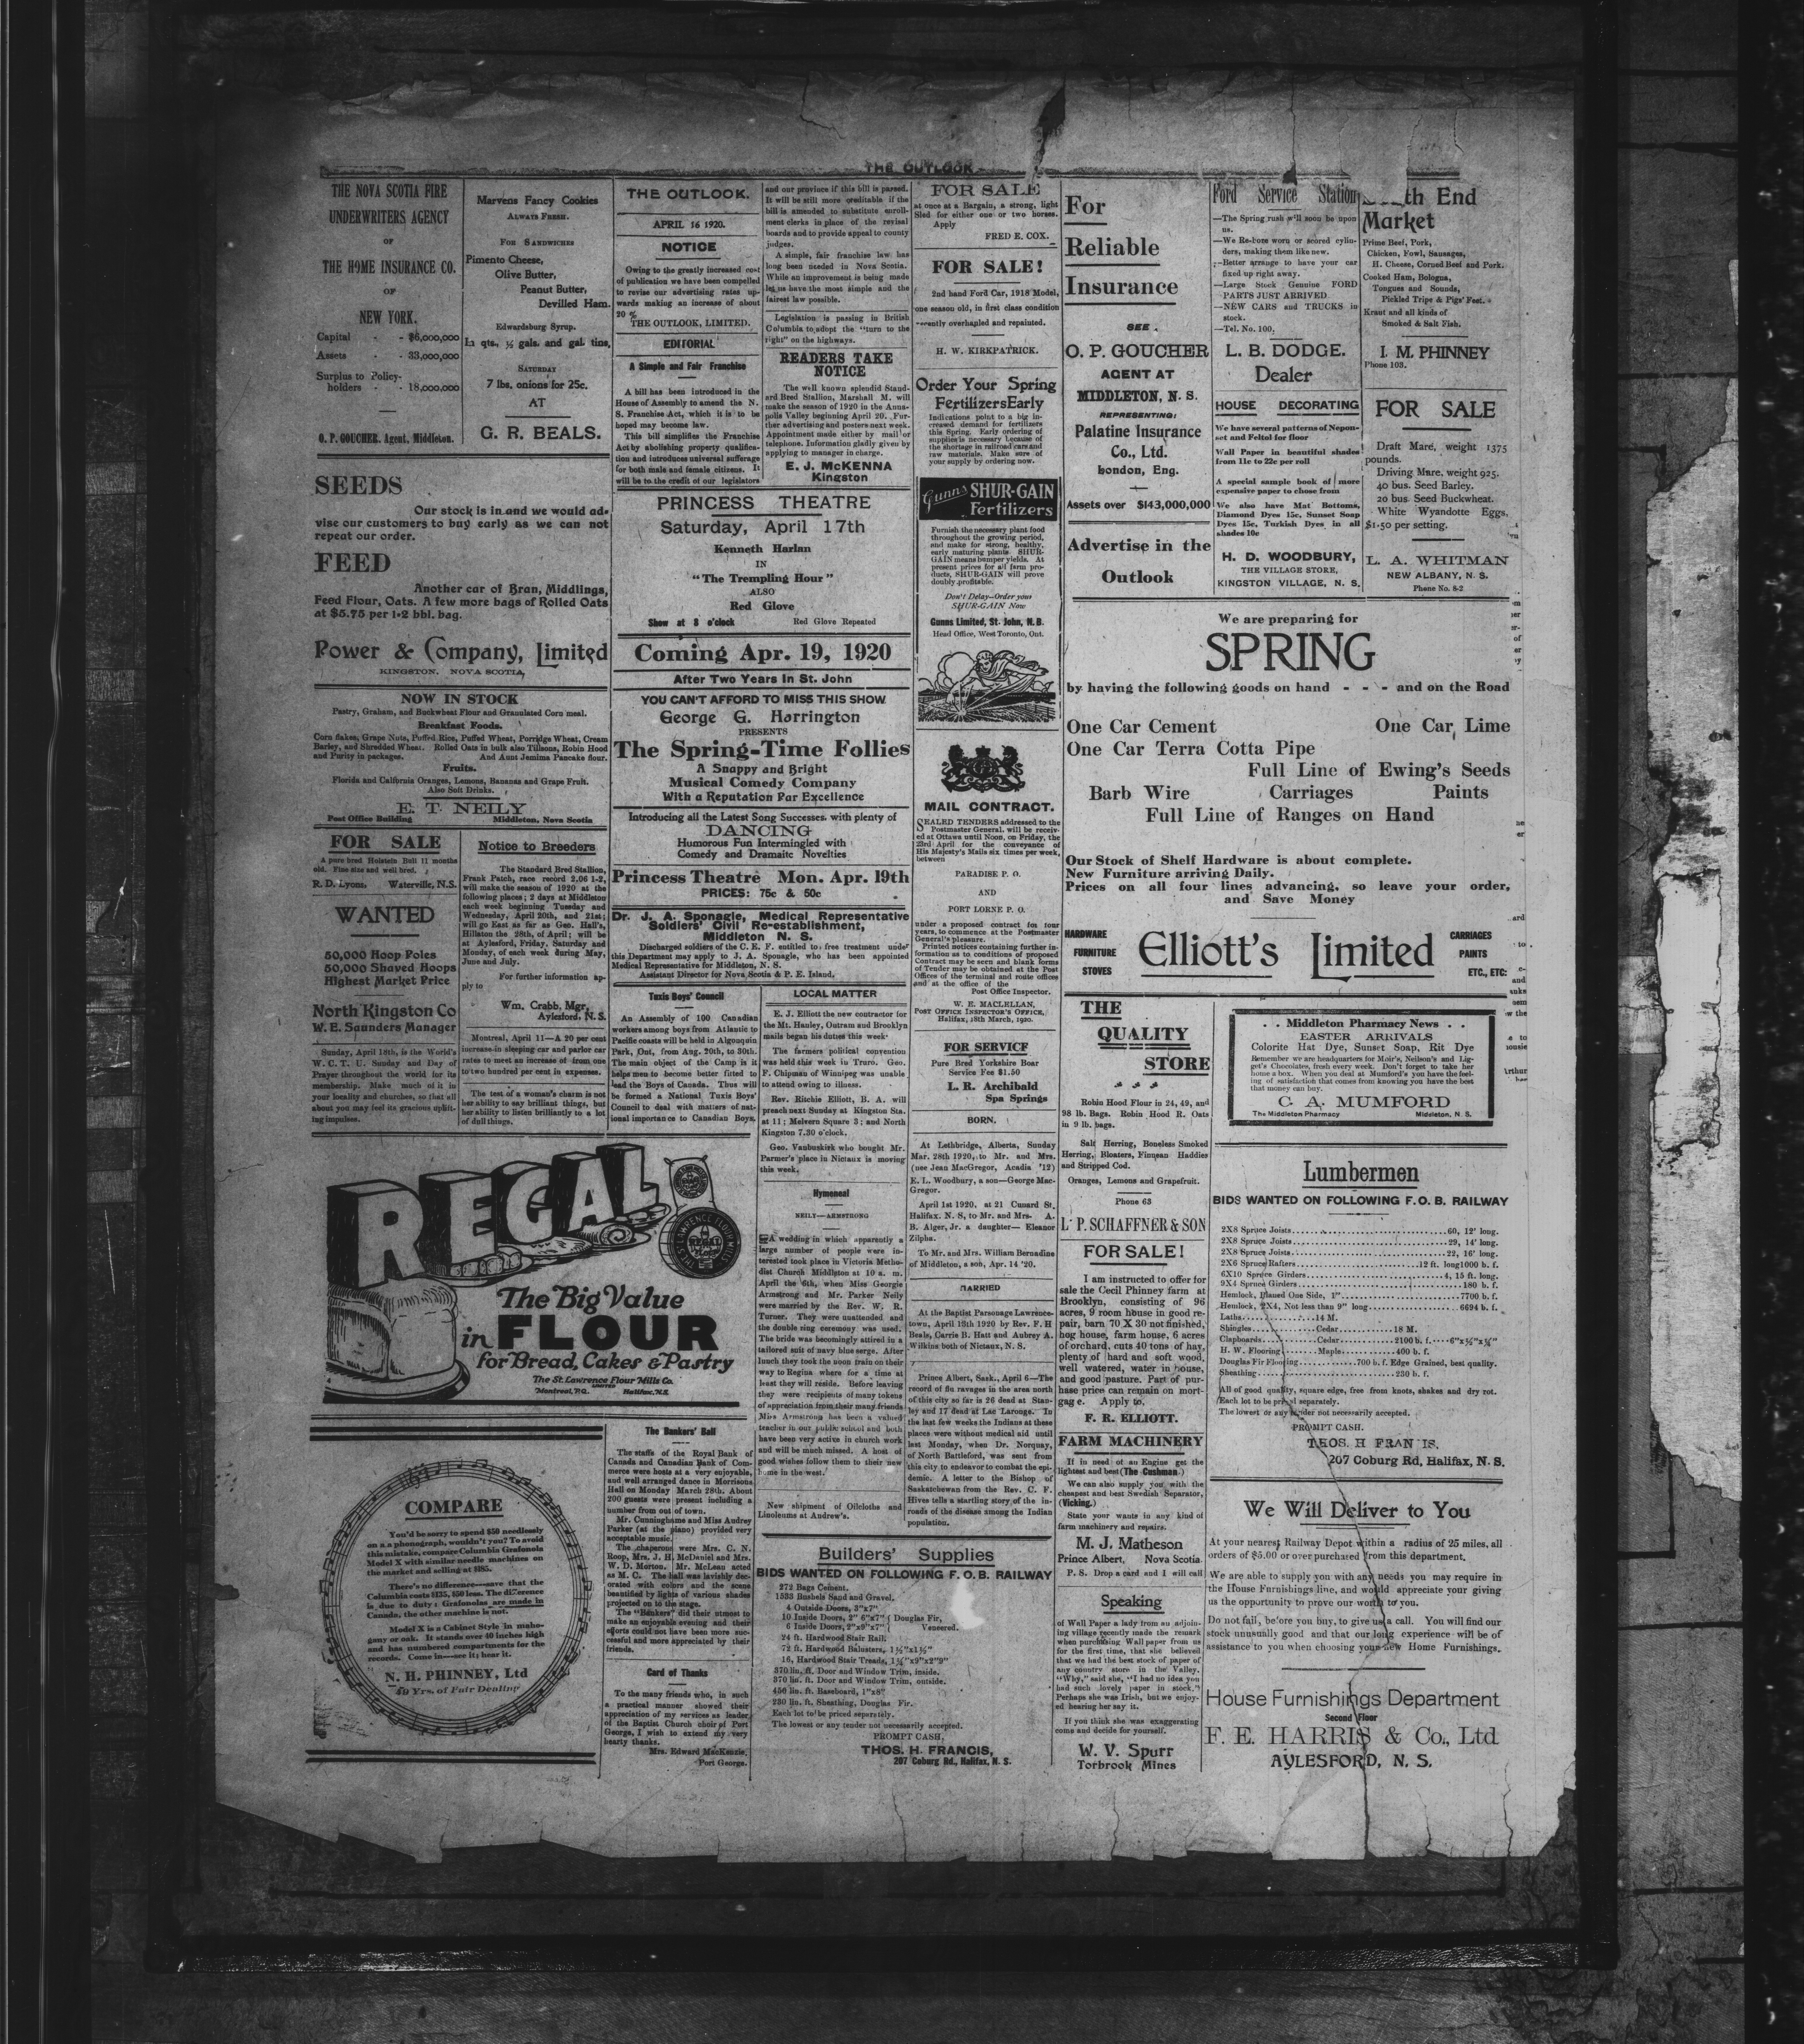 THE OUTLOOK
THE NOVA SCOTIA FIRE
UNDERWRITERS AGENCY
OF
THE HOME INSURANCE CO.
OF
NEW YORK.
Capital - - $6,000,000
Assets - - 33,000,000
Surplus to Policy-
holders - - 18,000,000
O. P. GOUCHER, Agent, Middleton.
Marvens Fancy Cookies
ALWAYS FRESH.
FOR SANDWICHES
Pimento Cheese,
Olive Butter,
Peanut Butter,
Devilled Ham.
Edwardsburg Syrup.
In qts, ½ gals. and gal. tins,
SATURDAY
7 lbs. onions for 25c.
AT
G. R. BEALS.
SEEDS
Our stock is in and we would ad-
vise our customers to buy early as we can not
repeat our order.
FEED
Another car of Bran, Middlings,
Feed Flour, Oats. A few more bags of Rolled Oats
at $5.75 per 1-2 bbl. bag.
Power & Company, Limited
KINGSTON, NOVA SCOTIA,
NOW IN STOCK
Pastry, Graham, and Buckwheat Flour and Granulated Corn meal.
Breakfast Foods.
Corn flakes, Grape Nuts, Puffed Rice, Puffed Wheat, Porridge Wheat, Cream
Barley, and Shredded Wheat. Rolled Oats in bulk also Tillsons, Robin Hood
and Purity in packages. And Aunt Jemima Pancake flour.
Fruits.
Florida and California Oranges, Lemons, Bananas and Grape Fruit.
Also Soft Drinks.
E. T. NEILY
Post Office Building Middleton, Nova Scotia
FOR SALE
A pure bred Holstein Bull 11 months
old. Fine size and well bred.
R. D. Lyons, Waterville, N.S.
WANTED
50,000 Hoop Poles
50,000 Shaved Hoops
Highest Market Price
North Kingston Co
W. E. Saunders Manager
Sunday, April 18th, is the World's
W. C. T. U. Sunday and Day of
Prayer throughout the world for its
membership. Make much of it in
your locality and churches, so that all
about you may feel its gracious uplift-
ing impulses.
Notice to Breeders
The Standard Bred Stallion,
Frank Patch, race record 2.06 1-2,
will make the season of 1920 at the
following places; 2 days at Middleton
each week beginning Tuesday and
Wednesday, April 20th, and 21st;
will go East as far as Geo. Hall's,
Hillaton the 28th, of April; will be
at Aylesford, Friday, Saturday and
Monday, of each week during May,
June and July.
For further information ap-
ply to
Wm. Crabb, Mgr,
Aylesford, N. S.
Montreal, April 11—A 20 per cent
increase in sleeping car and parlor car
rates to meet an increase of from one
to two hundred per cent in expenses.
The test of a woman's charm is not
her ability to say brilliant things, but
her ability to listen brilliantly to a lot
of dull things.
REGAL
The Big Value
in FLOUR
for Bread, Cakes & Pastry
The St. Lawrence Flour Mills Co.
LIMITED
Montreal, P.Q. Halifax, N.S.
COMPARE
You'd be sorry to spend $50 needlessly
on a a phonograph, wouldn't you? To avoid
this mistake, compare Columbia Grafonola
Model X with similar needle machines on
the market and selling at $185.
There's no difference—save that the
Columbia costs $135, $50 less. The difference
is due to duty: Grafonolas are made in
Canada, the other machine is not.
Model X is a Cabinet Style in maho-
gany or oak. It stands over 40 inches high
and has numbered compartments for the
records. Come in—see it; hear it.
N. H. PHINNEY, Ltd
40 Yrs. of Fair Dealing
THE OUTLOOK.
APRIL 16 1920.
NOTICE
Owing to the greatly increased cost
of publication we have been compelled
to revise our advertising rates up-
wards making an increase of about
20 %
THE OUTLOOK, LIMITED.
EDITORIAL
A Simple and Fair Franchise
A bill has been introduced in the
House of Assembly to amend the N.
S. Franchise Act, which it is to be
hoped may become law.
This bill simplifies the Franchise
Act by abolishing property qualifica-
tion and introduces universal sufferage
for both male and female citizens. It
will be to the credit of our legislators
and our province if this bill is passed.
It will be still more creditable if the
bill is amended to substitute enroll-
ment clerks in place of the revisal
boards and to provide appeal to county
judges.
A simple, fair franchise law has
long been needed in Nova Scotia.
While an improvement is being made
let us have the most simple and the
fairest law possible.
Legislation is passing in British
Columbia to adopt the "turn to the
right" on the highways.
READERS TAKE
NOTICE
The well known splendid Stand-
ard Bred Stallion, Marshall M. will
make the season of 1920 in the Anna-
polis Valley beginning April 20. Fur-
ther advertising and posters next week.
Appointment made either by mail or
telephone. Information gladly given by
applying to manager in charge.
E. J. McKENNA
Kingston
PRINCESS THEATRE
Saturday, April 17th
Kenneth Harlan
IN
"The Trempling Hour"
ALSO
Red Glove
Show at 8 o'clock Red Glove Repeated
Coming Apr. 19, 1920
After Two Years In St. John
YOU CAN'T AFFORD TO MISS THIS SHOW
George G. Horrington
PRESENTS
The Spring-Time Follies
A Snappy and Bright
Musical Comedy Company
With a Reputation Par Excellence
Introducing all the Latest Song Successes, with plenty of
DANCING
Humorous Fun Intermingled with
Comedy and Dramaitc Novelties
Princess Theatre Mon. Apr. 19th
PRICES: 75c & 50c
Dr. J. A. Sponagle, Medical Representative
Soldiers' Civil Re-establishment,
Middleton N. S.
Discharged soldiers of the C. E. F. entitled to free treatment under
this Department may apply to J. A. Sponagle, who has been appointed
Medical Representative for Middleton, N. S.
Assistant Director for Nova Scotia & P. E. Island,
Tuxis Boys' Council
An Assembly of 100 Canadian
workers among boys from Atlantic to
Pacific coasts will be held in Algonquin
Park, Ont, from Aug. 20th, to 30th.
The main object of the Camp is it
helps men to become better fitted to
lead the Boys of Canada. Thus will
be formed a National Tuxis Boys'
Council to deal with matters of nat-
ional importance to Canadian Boys.
LOCAL MATTER
E. J. Elliott the new contractor for
the Mt. Hanley, Outram and Brooklyn
mails began his duties this week.
The farmers political convention
was held this week in Truro. Geo.
F. Chipman of Winnipeg was unable
to attend owing to illness.
Rev. Ritchie Elliott, B. A. will
preach next Sunday at Kingston Sta.
at 11; Melvern Square 3; and North
Kingston 7.30 o'clock.
Geo. Vanbuskirk who bought Mr.
Parmer's place in Nictaux is moving
this week.
Hymeneal
NEILY—ARMSTRONG
A wedding in which apparently a
large number of people were in-
terested took place in Victoria Metho-
dist Church Middleton at 10 a. m.
April the 6th, when Miss Georgie
Armstrong and Mr. Parker Neily
were married by the Rev. W. R.
Turner. They were unattended and
the double ring ceremony was used.
The bride was becomingly attired in a
tailored suit of navy blue serge. After
lunch they took the noon train on their
way to Regina where for a time at
least they will reside. Before leaving
they were recipients of many tokens
of appreciation from their many friends
Miss Armstrong has been a valued
teacher in our public school and both
have been very active in church work
and will be much missed. A host of
good wishes follow them to their new
home in the west.
New shipment of Oilcloths and
Linoleums at Andrew's.
The Bankers' Ball
The staffs of the Royal Bank of
Canada and Canadian Bank of Com-
merce were hosts at a very enjoyable,
and well arranged dance in Morrisons
Hall on Monday March 28th. About
200 guests were present including a
number from out of town.
Mr. Cunninghame and Miss Audrey
Parker (at the piano) provided very
acceptable music.
The chaperons were Mrs. C. N.
Roop, Mrs. J. H. McDaniel and Mrs.
W. D. Morton. Mr. McLean acted
as M. C. The hall was lavishly dec-
orated with colors and the scene
beautified by lights of various shades
projected on to the stage.
The "Bankers" did their utmost to
make an enjoyable evening and their
efforts could not have been more suc-
cessful and more appreciated by their
friends.
Card of Thanks
To the many friends who, in such
a practical manner showed their
appreciation of my services as leader
of the Baptist Church choir of Port
George, I wish to extend my very
hearty thanks.
Mrs. Edward MacKenzie,
Port George.
Builders' Supplies
BIDS WANTED ON FOLLOWING F. O. B. RAILWAY
272 Bags Cement.
1533 Bushels Sand and Gravel.
4 Outside Doors, 3"x7"
10 Inside Doors, 2" 6"x7" { Douglas Fir,
6 Inside Doors, 2"x9"x7" { Veneered.
24 ft. Hardwood Stair Rail.
72 ft. Hardwood Balusters, 1½"x1½"
16, Hardwood Stair Treads, 1¼"x9"x2"9"
370 lin. ft. Door and Window Trim, inside.
370 lin. ft. Door and Window Trim, outside.
456 lin. ft. Baseboard, 1"x8"
230 lin. ft. Sheathing, Douglas Fir.
Each lot to be priced separately.
The lowest or any tender not necessarily accepted.
PROMPT CASH,
THOS. H. FRANCIS,
207 Coburg Rd., Halifax, N. S.
FOR SALE
at once at a Bargain, a strong, light
Sled for either one or two horses.
Apply
FRED E. COX.
FOR SALE!
2nd hand Ford Car, 1918 Model,
one season old, in first class condition
recently overhauled and repainted.
H. W. KIRKPATRICK.
Order Your Spring
Fertilizers Early
Indications point to a big in-
creased demand for fertilizers
this Spring. Early ordering of
supplies is necessary because of
the shortage in railroad cars and
raw materials. Make sure of
your supply by ordering now.
Gunns SHUR-GAIN
Fertilizers
Furnish the necessary plant food
throughout the growing period,
and make for strong, healthy,
early maturing plants. SHUR-
GAIN means bumper yields. At
present prices for all farm pro-
ducts, SHUR-GAIN will prove
doubly profitable.
Don't Delay—Order your
SHUR-GAIN Now
Gunns Limited, St. John, N.B.
Head Office, West Toronto, Ont.
MAIL CONTRACT.
SEALED TENDERS addressed to the
Postmaster General, will be receiv-
ed at Ottawa until Noon, on Friday, the
23rd April for the conveyance of
His Majesty's Mails six times per week,
between
PARADISE P. O.
AND
PORT LORNE P. O.
under a proposed contract for four
years, to commence at the Postmaster
General's pleasure.
Printed notices containing further in-
formation as to conditions of proposed
Contract may be seen and blank forms
of Tender may be obtained at the Post
Offices of the terminal and route offices
and at the office of the
Post Office Inspector.
W. E. MACLELLAN,
POST OFFICE INSPECTOR'S OFFICE,
Halifax, 18th March, 1920.
FOR SERVICE
Pure Bred Yorkshire Boar
Service Fee $1.50
L. R. Archibald
Spa Springs
BORN.
At Lethbridge, Alberta, Sunday
Mar. 28th 1920, to Mr. and Mrs.
(nee Jean MacGregor, Acadia '12)
E. L. Woodbury, a son—George Mac-
Gregor.
April 1st 1920, at 21 Cunard St,
Halifax. N. S, to Mr. and Mrs- A.
B. Alger, Jr. a daughter— Eleanor
Zilpha.
To Mr. and Mrs. William Bernadine
of Middleton, a son, Apr. 14 '20.
MARRIED
At the Baptist Parsonage Lawrence-
town, April 13th 1920 by Rev. F. H
Beals, Carrie B. Hatt and Aubrey A.
Wilkins both of Nictaux, N. S.
Prince Albert, Sask., April 6—The
record of flu ravages in the area north
of this city so far is 26 dead at Stan-
ley and 17 dead at Lac Laronge. In
the last few weeks the Indians at these
places were without medical aid until
last Monday, when Dr. Norquay,
of North Battleford, was sent from
this city to endeavor to combat the epi-
demic. A letter to the Bishop of
Saskatchewan from the Rev. C. F.
Hives tells a startling story of the in-
roads of the disease among the Indian
population.
For
Reliable
Insurance
SEE
O. P. GOUCHER
AGENT AT
MIDDLETON, N. S.
REPRESENTING:
Palatine Insurance
Co., Ltd.
London, Eng.
Assets over $143,000,000
Advertise in the
Outlook
Ford Service Station
—The Spring rush will soon be upon
us.
—We Re-bore worn or scored cylin-
ders, making them like new.
—Better arrange to have your car
fixed up right away.
—Large Stock Genuine FORD
PARTS JUST ARRIVED
—NEW CARS and TRUCKS in
stock.
—Tel. No. 100.
L. B. DODGE.
Dealer
HOUSE DECORATING
We have several patterns of Nepon-
set and Feltol for floor
Wall Paper in beautiful shades
from 11c to 22c per roll
A special sample book of more
expensive paper to chose from
We also have Mat Bottoms,
Diamond Dyes 15c, Sunset Soap
Dyes 15c, Turkish Dyes in all
shades 10c
H. D. WOODBURY,
THE VILLAGE STORE,
KINGSTON VILLAGE, N. S.
th End
Market
Prime Beef, Pork,
Chicken, Fowl, Sausages,
H. Cheese, Corned Beef and Pork.
Cooked Ham, Bologna,
Tongues and Sounds,
Pickled Tripe & Pigs' Feet.
Kraut and all kinds of
Smoked & Salt Fish.
I. M. PHINNEY
Phone 103.
FOR SALE
Draft Mare, weight 1375
pounds.
Driving Mare, weight 925.
40 bus. Seed Barley.
20 bus. Seed Buckwheat.
White Wyandotte Eggs,
$1.50 per setting.
L. A. WHITMAN
NEW ALBANY, N. S.
Phone No. 8-2
We are preparing for
SPRING
by having the following goods on hand - - - and on the Road
One Car Cement One Car Lime
One Car Terra Cotta Pipe
Full Line of Ewing's Seeds
Barb Wire Carriages Paints
Full Line of Ranges on Hand
Our Stock of Shelf Hardware is about complete.
New Furniture arriving Daily.
Prices on all four lines advancing, so leave your order,
and Save Money
HARDWARE
FURNITURE
STOVES
Elliott's Limited
CARRIAGES
PAINTS
ETC., ETC:
THE
QUALITY
STORE
Robin Hood Flour in 24, 49, and
98 lb. Bags. Robin Hood R. Oats
in 9 lb. bags.
Salt Herring, Boneless Smoked
Herring, Bloaters, Finnean Haddies
and Stripped Cod.
Oranges, Lemons and Grapefruit.
Phone 63
L. P. SCHAFFNER & SON
FOR SALE!
I am instructed to offer for
sale the Cecil Phinney farm at
Brooklyn, consisting of 96
acres, 9 room house in good re-
pair, barn 70 X 30 not finished,
hog house, farm house, 6 acres
of orchard, cuts 40 tons of hay,
plenty of hard and soft wood,
well watered, water in house,
and good pasture. Part of pur-
hase price can remain on mort-
gage. Apply to,
F. R. ELLIOTT.
FARM MACHINERY
If in need of an Engine get the
lightest and best (The Cushman.)
We can also supply you with the
cheapest and best Swedish Separator,
(Vicking.)
State your wants in any kind of
farm machinery and repairs.
M. J. Matheson
Prince Albert, Nova Scotia
P. S. Drop a card and I will call
Speaking
of Wall Paper a lady from an adjoin-
ing village recently made the remark
when purchasing Wall paper from us
for the first time, that she believed
that we had the best stock of paper of
any country store in the Valley.
"Why," said she, "I had no idea you
had such lovely paper in stock."
Perhaps she was Irish, but we enjoy-
ed hearing her say it.
If you think she was exaggerating
come and decide for yourself.
W. V. Spurr
Torbrook Mines
. . Middleton Pharmacy News . .
EASTER ARRIVALS
Colorite Hat Dye, Sunset Soap, Rit Dye
Remember we are headquarters for Moir's, Neilson's and Lig-
get's Chocolates, fresh every week. Don't forget to take her
home a box. When you deal at Mumford's you have the feel-
ing of satisfaction that comes from knowing you have the best
that money can buy.
C. A. MUMFORD
The Middleton Pharmacy Middleton, N. S.
Lumbermen
BIDS WANTED ON FOLLOWING F. O. B. RAILWAY
2X8 Spruce Joists 60, 12' long.
2X8 Spruce Joists 29, 14' long.
2X8 Spruce Joists 22, 16' long.
2X6 Spruce Rafters 12 ft. long 1000 b. f.
6X10 Spruce Girders 4, 15 ft. long.
9X4 Spruce Girders 180 b. f.
Hemlock, Planed One Side, 1" 7700 b. f.
Hemlock, 2X4, Not less than 9" long 6694 b. f.
Laths 14 M.
Shingles Cedar 18 M.
Clapboards Cedar 2100 b. f. 6"x½"x¼"
H. W. Flooring Maple 400 b. f.
Douglas Fir Flooring 700 b. f. Edge Grained, best quality.
Sheathing 230 b. f.
All of good quality, square edge, free from knots, shakes and dry rot.
Each lot to be priced separately.
The lowest or any tender not necessarily accepted.
PROMPT CASH.
THOS. H FRANCIS,
207 Coburg Rd, Halifax, N. S.
We Will Deliver to You
At your nearest Railway Depot within a radius of 25 miles, all
orders of $5.00 or over purchased from this department.
We are able to supply you with any needs you may require in
the House Furnishings line, and would appreciate your giving
us the opportunity to prove our worth to you.
Do not fail, before you buy, to give us a call. You will find our
stock unusually good and that our long experience will be of
assistance to you when choosing your new Home Furnishings.
House Furnishings Department
Second Floor
F. E. HARRIS & Co., Ltd
AYLESFORD, N. S.